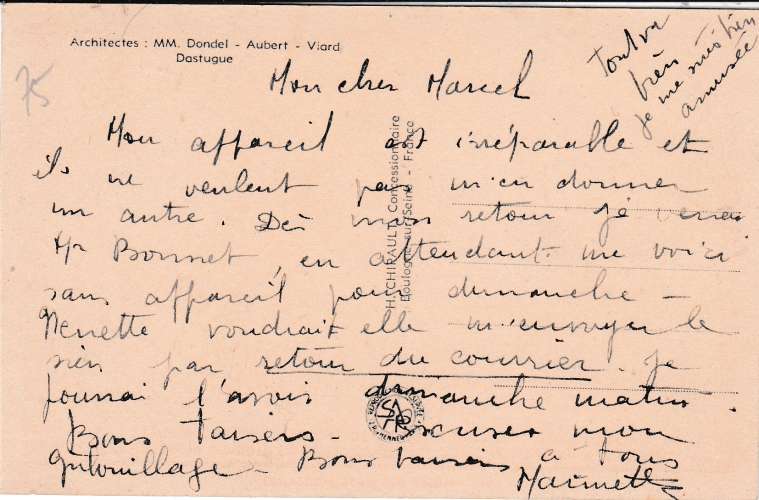 Architectes : MM. Dondel - Aubert - Viard
Dastugue
75
Tout va
bien
je me suis bien
amusée
Mon cher Marcel
Mon appareil est irréparable et
ils ne veulent pas m'en donner
un autre. Dès mon retour je verrai
Mr Bonnet, en attendant me voici
sans appareil pour dimanche -
Nénette voudrait elle m'envoyer le
sien par retour du courrier. Je
pourrai l'avoir dimanche matin.
Bons baisers - excuser mon
gribouillage - Bons baisers à tous
H. CHIRAULT, Concessionnaire
Boulogne-sur-Seine - France